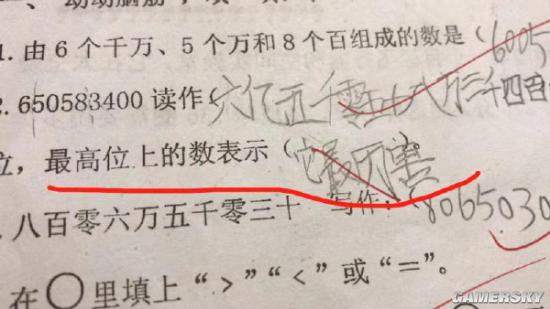 1. 由6个千万、5个万和8个百组成的数是（6005
2. 650583400 读作（六亿五千零五十八万三千四百
位，最高位上的数表示（它最厉害
八百零六万五千零三十 写作：8065030
在○里填上“>”“<”或“=”。
GAMERSKY